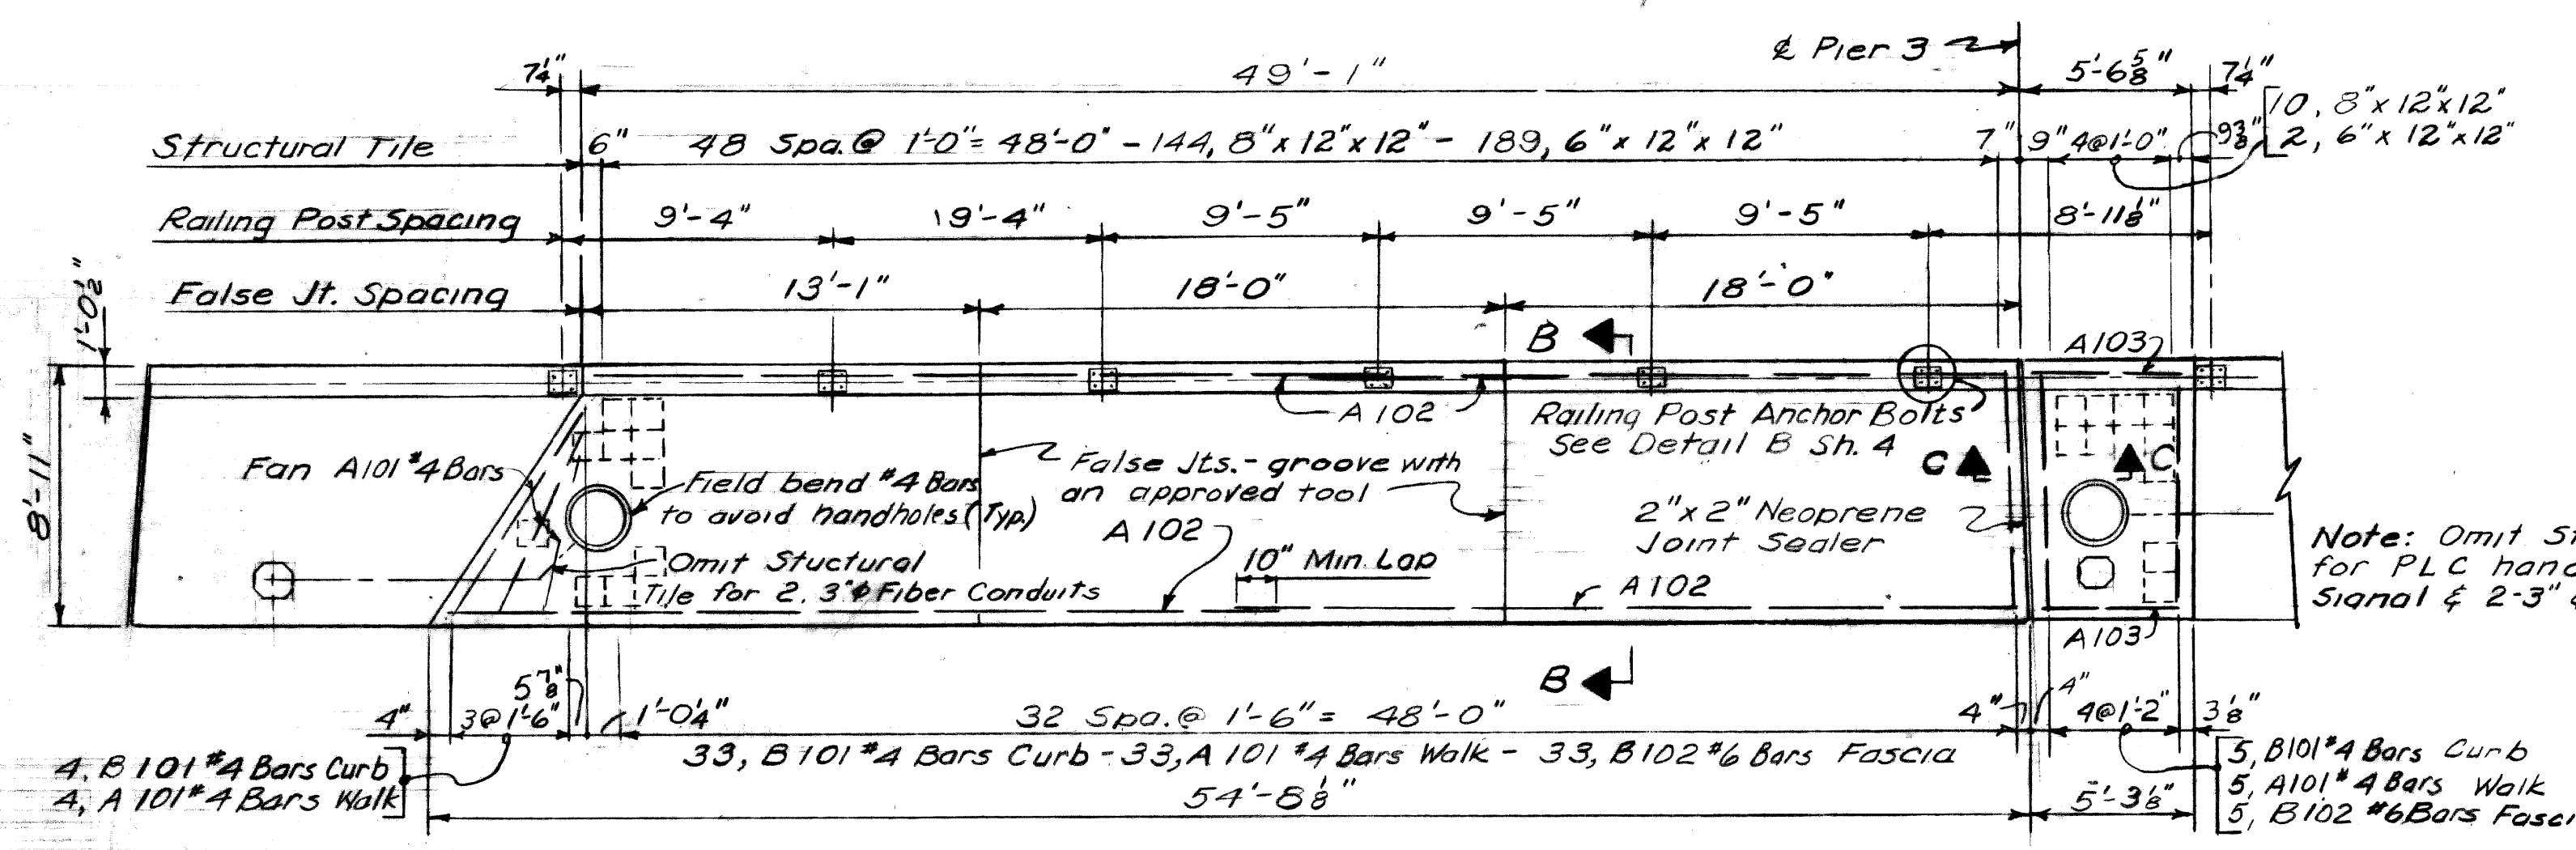 ℄ Pier 3
7¼"
49'-1"
5'-6⅝"
7¼"
Structural Tile
6"
48 Spa.@ 1'-0"= 48'-0" - 144, 8"x 12"x 12" - 189, 6"x 12"x 12"
7"
9"
4@1'-0"
9⅜"
10, 8"x 12"x 12"
2, 6"x 12"x 12"
Railing Post Spacing
9'-4"
9'-4"
9'-5"
9'-5"
9'-5"
8'-11⅛"
False Jt. Spacing
13'-1"
18'-0"
18'-0"
1'-0½"
8'-11"
B
A103
A 102
Railing Post Anchor Bolts
See Detail B Sh. 4
C
C
Fan A101 #4 Bars
Field bend #4 Bars
to avoid handholes (Typ.)
False Jts.- groove with
an approved tool
A 102
2"x 2" Neoprene
Joint Sealer
Omit Stuctural
Tile for 2. 3"ϕ Fiber Conduits
10" Min. Lap
A 102
Note: Omit St
for PLC hand
Signal & 2-3"
A103
B
4"
3@1'-6"
5⅞"
1'-0¼"
32 Spa.@ 1'-6"= 48'-0"
4"
4"
4@1'-2"
3⅛"
33, B101 #4 Bars Curb - 33, A101 #4 Bars Walk - 33, B102 #6 Bars Fascia
4, B101 #4 Bars Curb
4, A101 #4 Bars Walk
54'-8⅛"
5'-3⅛"
5, B101 #4 Bars Curb
5, A101 #4 Bars Walk
5, B102 #6 Bars Fasci